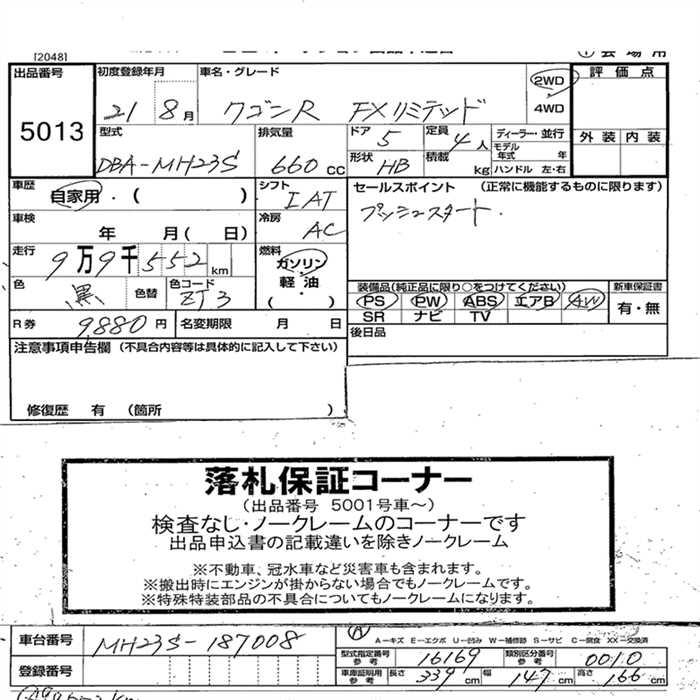 [2048]
出品番号
5013
初度登録年月
21 8月
車名・グレード
ワゴンR FXリミテッド
2WD
4WD
評価点
外装 内装
型式
DBA-MH23S
排気量
660cc
ドア
5
定員
4人
形状
HB
積載
kg
ディーラー・並行
モデル年式 年
ハンドル 左・右
車歴
自家用・( )
シフト
IAT
セールスポイント (正常に機能するものに限ります)
プッシュスタート.
車検
年 月( 日)
冷房
AC
走行
9万9千552km
燃料
ガソリン・
軽油・
( )
色
黒
色替
色コード
ZJ3
装備品(純正品に限り○をつけてください)
PS PW ABS エアB AW
SR ナビ TV
新車保証書
有・無
R券
9,880円
名変期限 月 日
後日品
注意事項申告欄 (不具合内容等は具体的に記入して下さい)
修復歴 有 (箇所 )
落札保証コーナー
(出品番号 5001号車～)
検査なし・ノークレームのコーナーです
出品申込書の記載違いを除きノークレーム
※不動車、冠水車など災害車も含まれます。
※搬出時にエンジンが掛からない場合でもノークレームです。
※特殊特装部品の不具合についてもノークレームになります。
車台番号
MH23S-187008
A-キズ E-エクボ U-凹み W-補修跡 S-サビ C-腐食 XX-交換済
型式指定番号 参考
16169
類別区分番号 参考
0010
登録番号
車庫証明用 参考
長さ 339cm
幅 147cm
高さ 166cm